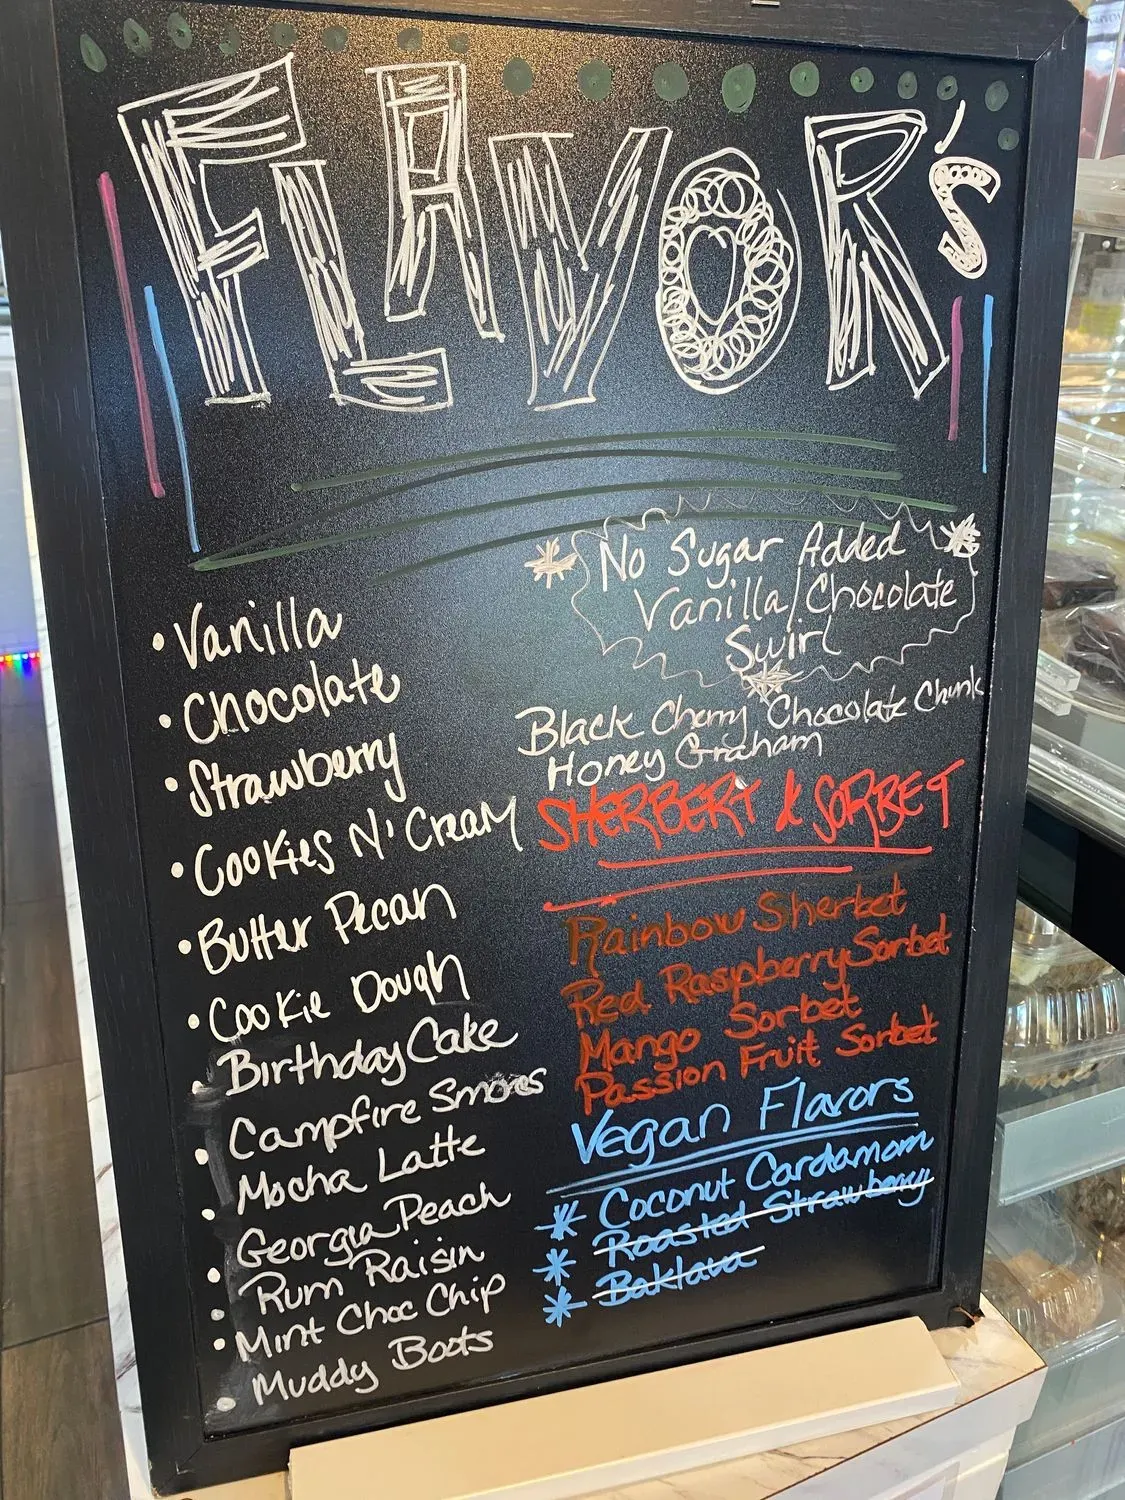 FLAVOR's
Vanilla
Chocolate
Strawberry
Cookies N' Cream
Butter Pecan
Cookie Dough
Birthday Cake
Campfire Smores
Mocha Latte
Georgia Peach
Rum Raisin
Mint Choc Chip
Muddy Boots
No Sugar Added
Vanilla/Chocolate
Swirl
Black Cherry Chocolate Chunk
Honey Graham
SHERBERT & SORBET
Rainbow Sherbet
Red Raspberry Sorbet
Mango Sorbet
Passion Fruit Sorbet
Vegan Flavors
Coconut Cardamom
Roasted Strawberry
Baklava